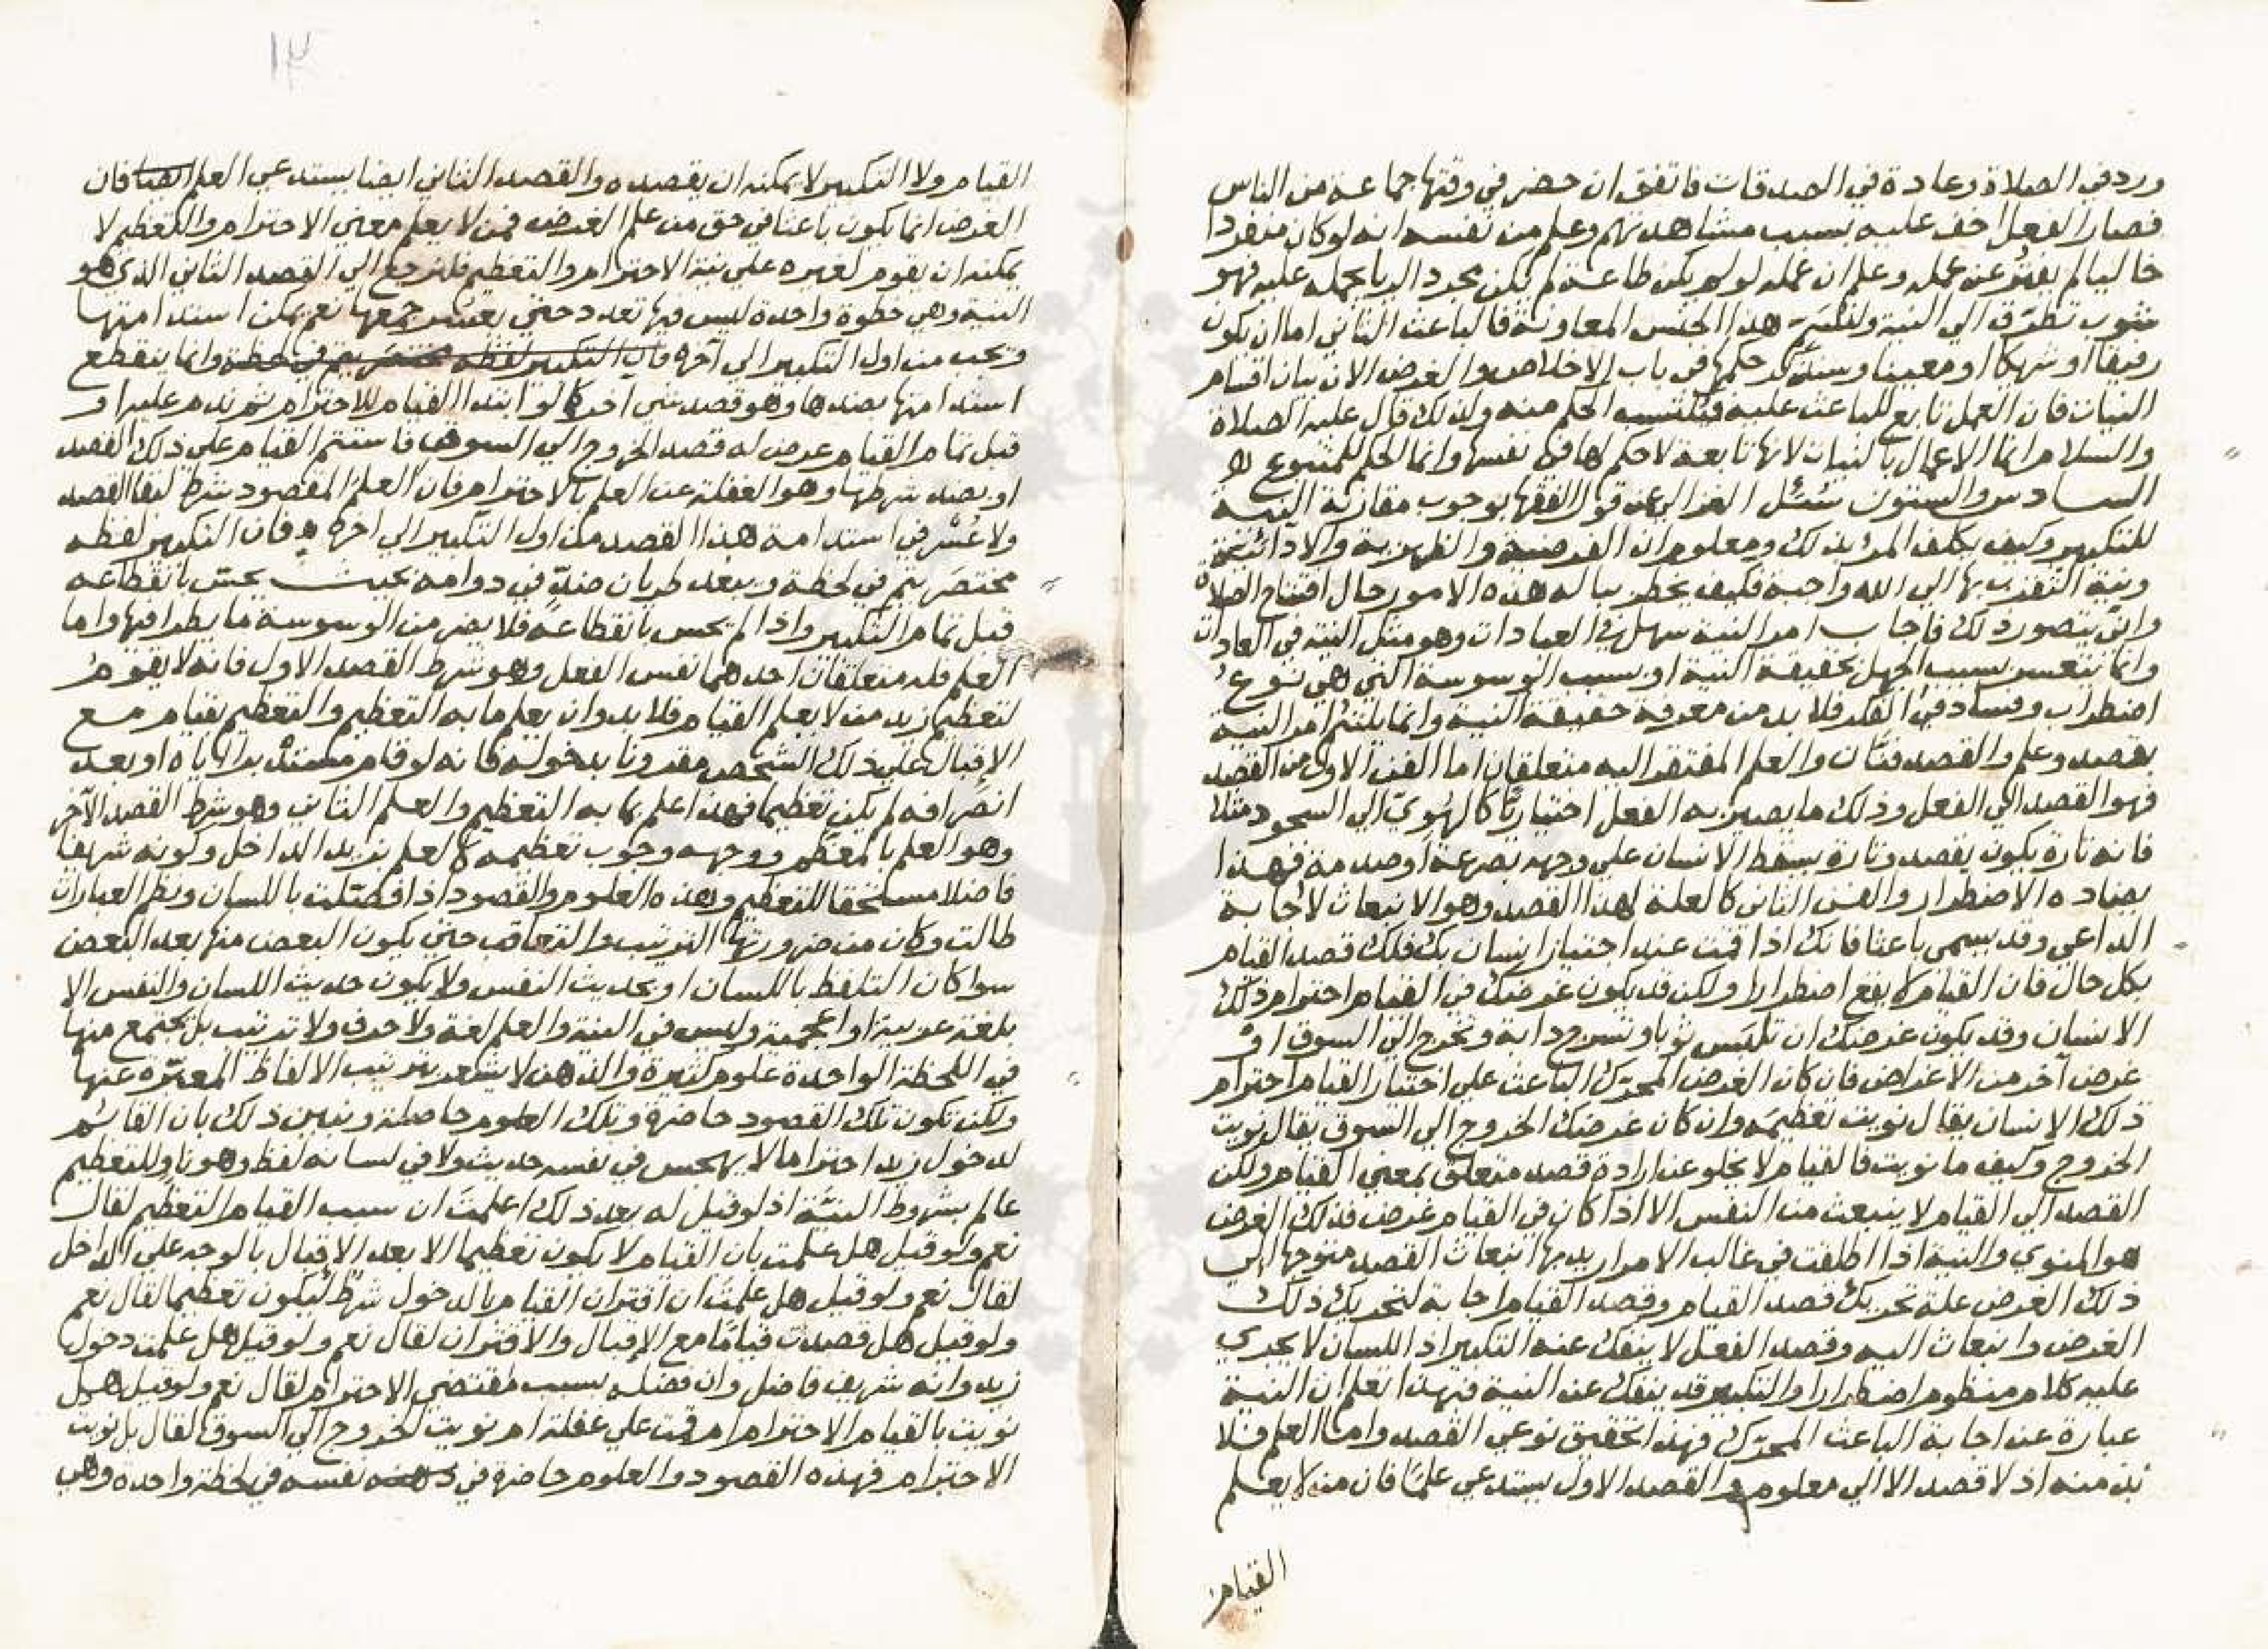 ورد في الصلاة وعادة في الصدقات فاتفق ان حضر في وقتها جماعة من الناس
فصار الفعل اخف عليه بسبب مشاهدتهم وعلم من نفسه انه لو كان منفردا
خاليا لم يفتر عن عمله وعلم ان عمله لو لم يكن طاعة لم يكن مجرد الريا يحمله عليه فهو
شوب تطرق الي النية ولنسم هذا الجنس المعاونة فالباعث الثاني اما ان يكون
رفيقا او شريكا او معينا وسنذكر حكمها في باب الاخلاص والغرض الان بيان اقسام
النيات فان العمل تابع للباعث عليه فيكتسب الحكم منه ولذلك قال عليه الصلاة
والسلام انما الاعمال بالنيات لانها تابعة لاحكم لها في نفسها وانما الحكم للمتبوع
السادس والستون سئل الغزالي عن قول الفقها بوجوب مقارنة النية
للتكبير وكيف يكلف المرء بذلك ومعلوم ان الفرضية والظهرية والادائية
ونية التقرب بها الي الله واجبة فكيف يخطر بباله هذه الامور حال افتتاح الصلاة
واني يتصور ذلك فاجاب امر النية سهل في العبادات وهو مثل النية في العادات
وانما يتعسر بسبب الجهل بحقيقة النية او بسبب الوسوسة التي هي نوع
اضطراب وفساد في الفكر فلا بد من معرفة حقيقة النية وانما يلتئم امر النية
بقصد وعلم والقصد فنان والعلم المفتقر اليه متعلقان اما الفن الاول من القصد
فهو القصد الي الفعل وذلك ما يصير به الفعل اختياريا كالهوي الي السجود مثلا
فانه تارة يكون بقصد وتارة يسقط الانسان علي وجهه بصرعة او صدمة فهذا
يضاده الاضطرار والفن الثاني كالعلة لهذا القصد وهو الانبعاث لاجابة
الداعي وقد يسمي باعثا فانك اذا قمت عند اجتياز انسان بك فلك قصد القيام
بكل حال فان القيام لا يقع اضطرارا ولكن قد يكون غرضك في القيام احترام ذلك
الانسان وقد يكون غرضك ان تلبس ثوبا وتسرج دابة وتخرج الي السوق او
غرض آخر من الاغراض فان كان الغرض المحرك الباعث علي اختيار القيام احترام
ذلك الانسان يقال نويت تعظيمه وان كان غرضك الخروج الي السوق يقال نويت
الخروج وكيف ما نويت فالقيام لا يخلو عن ارادة قصد متعلق بمعني القيام ولكن
القصد الي القيام لا ينبعث من النفس الا اذا كان في القيام غرض فذلك الغرض
هو المنوي والنية اذا اطلقت في غالب الامر اريد بها انبعاث القصد متوجها الي
ذلك الغرض علة تحريك قصد القيام وقصد القيام اجابة لتحريك ذلك
الغرض وانبعاث اليه وقصد الفعل لا ينفك عنه التكبير اذ اللسان لا يجري
عليه كلام منظوم اضطرارا والتكبير قد ينفك عن النية فبهذا تعلم ان النية
عبارة عن اجابة الباعث المحرك فهذا تحقيق نوعي القصد واما العلم فلا
بد منه اذ لا قصد الا الي معلوم والقصد الاول يستدعي علما فان من لا يعلم
القيام
القيام ولا التكبير لا يمكنه ان يقصده والقصد الثاني ايضا يستدعي العلم فان
الغرض انما يكون باعثا في حق من علم الغرض فمن لا يعلم معني الاحترام والتعظيم لا
يمكنه ان يقوم لغيره علي نية الاحترام والتعظيم فلنرجع الي القصد الثاني الذي هو
النية وهي خطرة واحدة ليس فيها تعدد حتي يعسر جمعها نعم يمكن استدامتها
وتجب من اول التكبير الي آخره فان التكبير لفظه مختصر يتم في لحظة وانما ينقطع
استدامتها بضدها وهو قصد شي اخر كما لو ابتدا القيام للاحترام ثم ندم عليه او
قبل تمام القيام عرض له قصد الخروج الي السوق فاستتم القيام علي ذلك القصد
او بضد شرطها وهو الغفلة عن العلم بالاحترام فان العلم المقصود شرط لبقا القصد
ولا عسر في استدامة هذا القصد من اول التكبير الي اخره فان التكبير لفظه
مختصر يتم في لحظة ويبعد طريان ضد في دوامه بحيث يحس بانقطاعه
قبل تمام التكبير واذا لم يحس بانقطاعه فلا يضر من الوسوسة ما يطرا فيها واما
العلم فله متعلقان احدهما نفس الفعل وهو شرط القصد الاول فانه لا يقوم
لتعظيم زيد من لا يعلم القيام فلا بد وان يعلم ما به التعظيم والتعظيم بقيام مع
الاقبال علي ذلك الشخص مقرونا بدخوله فانه لو قام مستدبرا اياه او بعد
انصرافه لم يكن تعظيما فهذا علم بما به التعظيم والعلم الثاني وهو شرط القصد الآخر
وهو العلم بالمعظم ووجهه وجوب تعظيمه كالعلم بزيد الداخل وكونه شريفا
فاضلا مستحقا للتعظيم وهذه العلوم والقصود اذا فصلت باللسان ونظم العبارات
طالت وكان من ضرورتها الترتيب والتعاقب حتي يكون البعض منها بعد البعض
سوا كان التلفظ باللسان او بحديث النفس ولا يكون حديث اللسان والنفس الا
بلغة عربية او عجمية وليس في النية والعلم لغة ولا حرف ولا ترتيب بل يجتمع منها
في اللحظة الواحدة علوم كثيرة والذهن لا يشعر بترتيب الالفاظ المعبرة عنها
ولكن تكون تلك القصود حاضرة وتلك العلوم حاصلة وتبين ذلك بان القائم
لدخول زيد احتراما لا يهجس في نفسه حديث ولا في لسانه لفظ وهو ناو للتعظيم
عالم بشروط النية اذ لو قيل له بعد ذلك اعلمت ان سبب القيام التعظيم لقال
نعم ولو قيل هل علمت بان القيام لا يكون تعظيما الا بعد الاقبال بالوجه علي الداخل
لقال نعم ولو قيل هل علمت ان اقتران القيام بالدخول شرط ليكون تعظيما لقال نعم
ولو قيل هل قصدت قياما مع الاقبال والاقتران لقال نعم ولو قيل هل علمت دخول
زيد وانه شريف فاضل وان فضله بسبب مقتضي الاحترام لقال نعم ولو قيل هل
نويت بالقيام الاحترام ام قمت علي غفلة ام نويت الخروج الي السوق لقال بل نويت
الاحترام فهذه القصود والعلوم حاضرة في نفسه في لحظة واحدة وهي